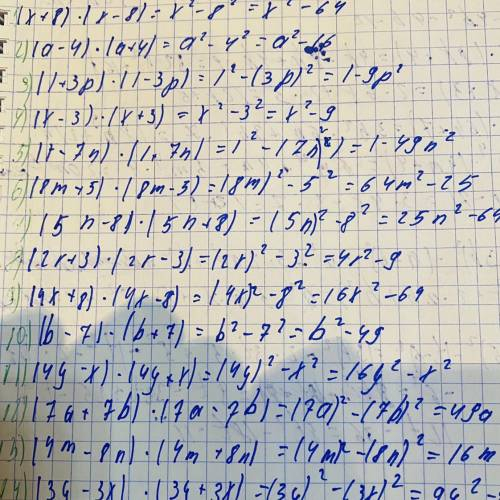 (x+8)·(x-8)=x²-8²=x²-64
2) (a-4)·(a+4)=a²-4²=a²-16
3) (1+3p)·(1-3p)=1²-(3p)²=1-9p²
4) (x-3)·(x+3)=x²-3²=x²-9
5) (1-7n)·(1, 7n)=1²-(7n²)=1-49n²
6) (8m+5)·(8m-5)=(8m)²-5²=64m²-25
(5n-8)·(5n+8)=(5n)²-8²=25n²-64
(2x+3)·(2x-3)=(2x)²-3²=4x²-9
9) (4x+8)·(4x-8)=(4x)²-8²=16x²-64
10) (b-7)·(b+7)=b²-7²=b²-49
11) (4y-x)·(4y+x)=(4y)²-x²=16y²-x²
12) (7a+7b)·(7a-7b)=(7a)²-(7b)²=49a
13) (4m-8n)·(4m+8n)=(4m)²-(8n)²=16m
14) (3y-3x)·(3y+3x)=(3y)²-(3x)²=9y²-